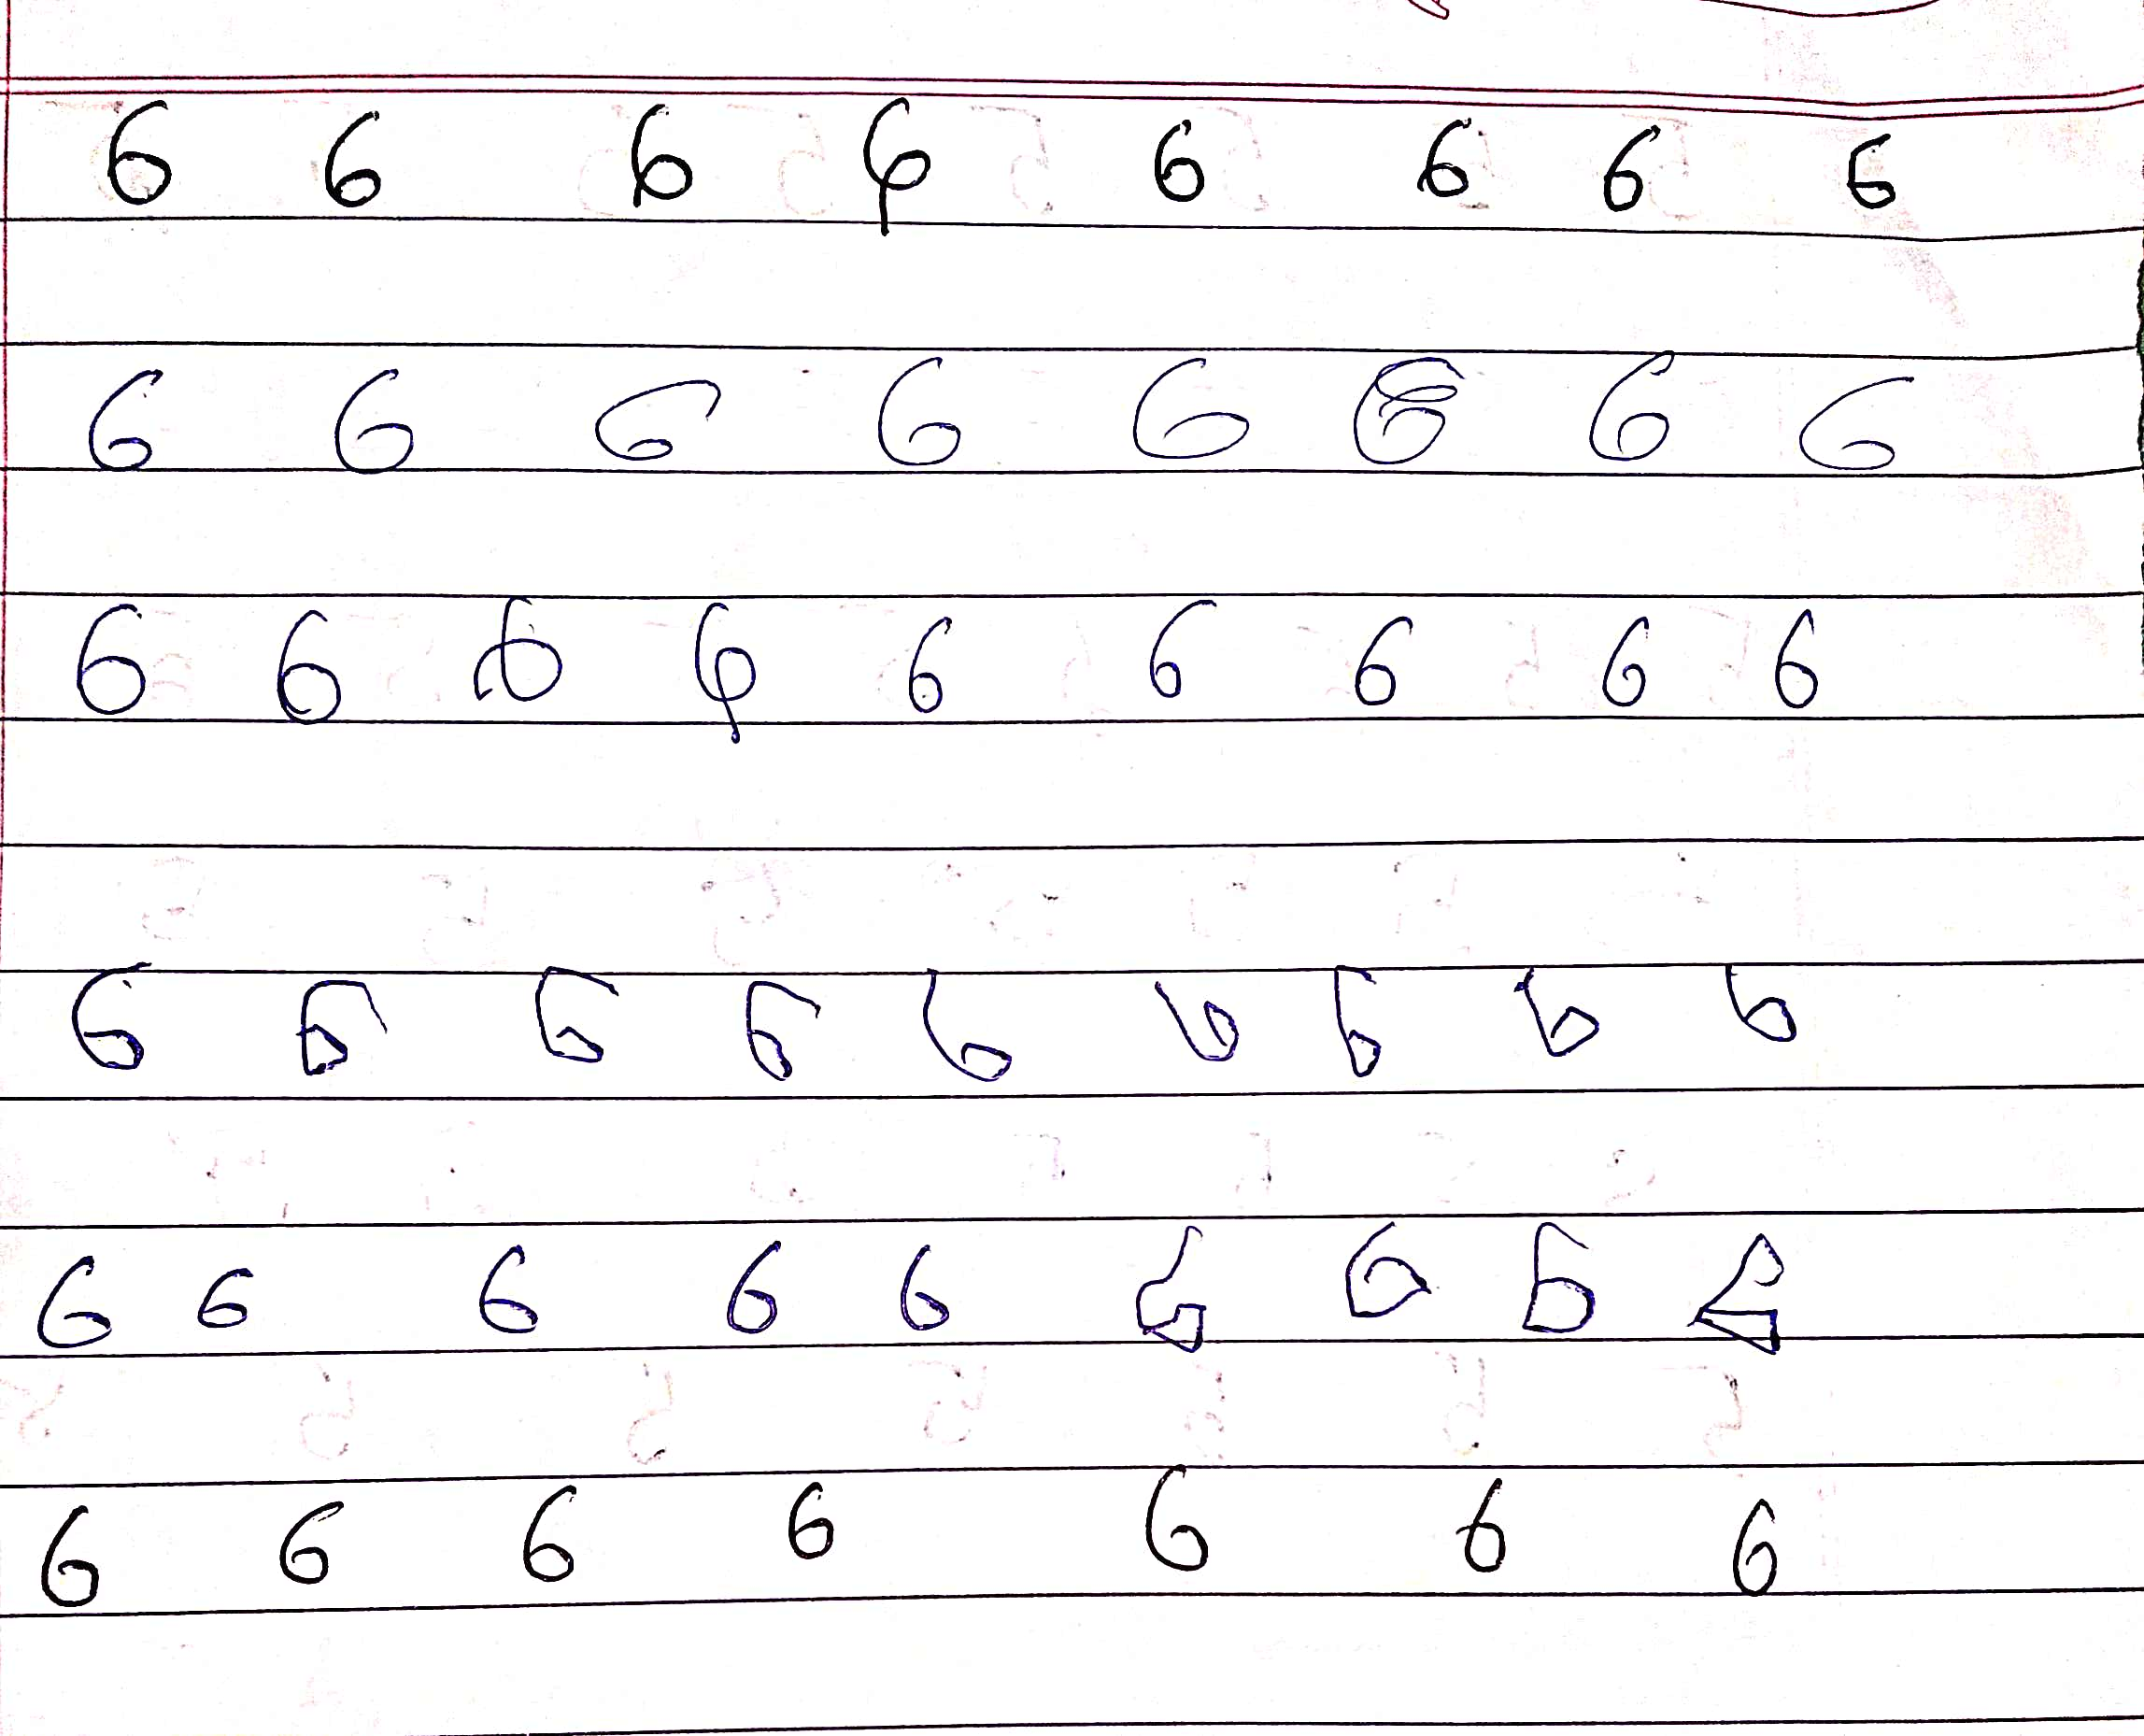 6 6 6 6 6 6 6 6
6 6 6 6 6 6 6 6
6 6 6 6 6 6 6 6 6
6 6 6 6 6 6 6 6 6
6 6 6 6 6 6 6 6 6
6 6 6 6 6 6 6